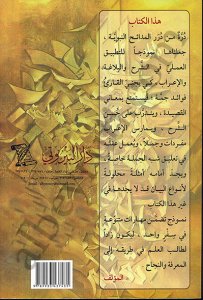 هذا الكتاب
دُرّة من دُرَرِ المدائح النبويَّة،
جعلناها أنموذجاً للتطبيق
العملي في الشرح والبلاغة،
والإعراب، كي يجني القارئ
فوائد جمّة، فيستمتع بمعاني
القصيدة، ويتدرّب على حُسن
الشرح، ويمارس الإعراب
مفردات وجملاً، ويعمل عقله
في تعليق شبه الجملة خاصة،
ويجد أمامه أمثلة محلولة
لأنواع البيان قد لا يجدها في
غير هذا الكتاب
نموذج تضمّن مهارات متنوّعة
في سِفرٍ واحد، ليكون زاداً
لطالب العلم في طريقه إلى
المعرفة والنجاح
المؤلف
دار البيروتي